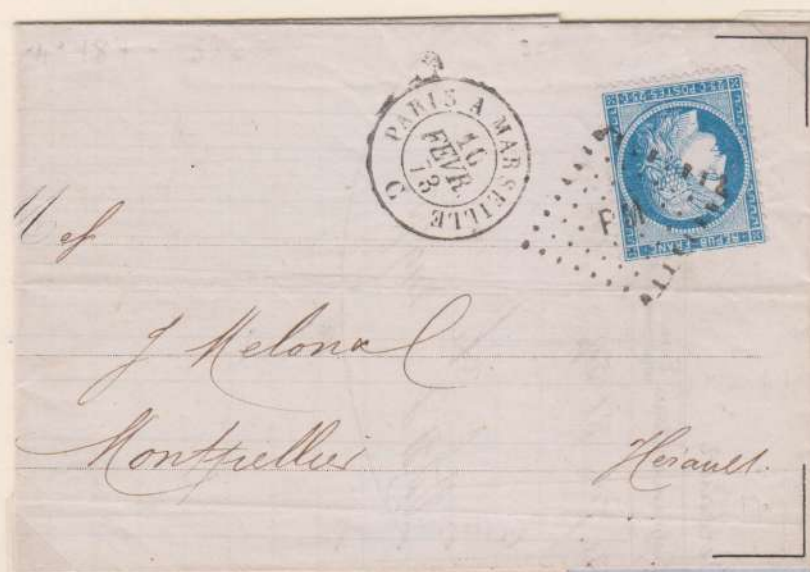 PARIS A MARSEILLE
10
FEVR.
73
C
25·C·POSTES·25·C
REPUB·FRANC
P M
J Melonal
Montpellier Hérault.